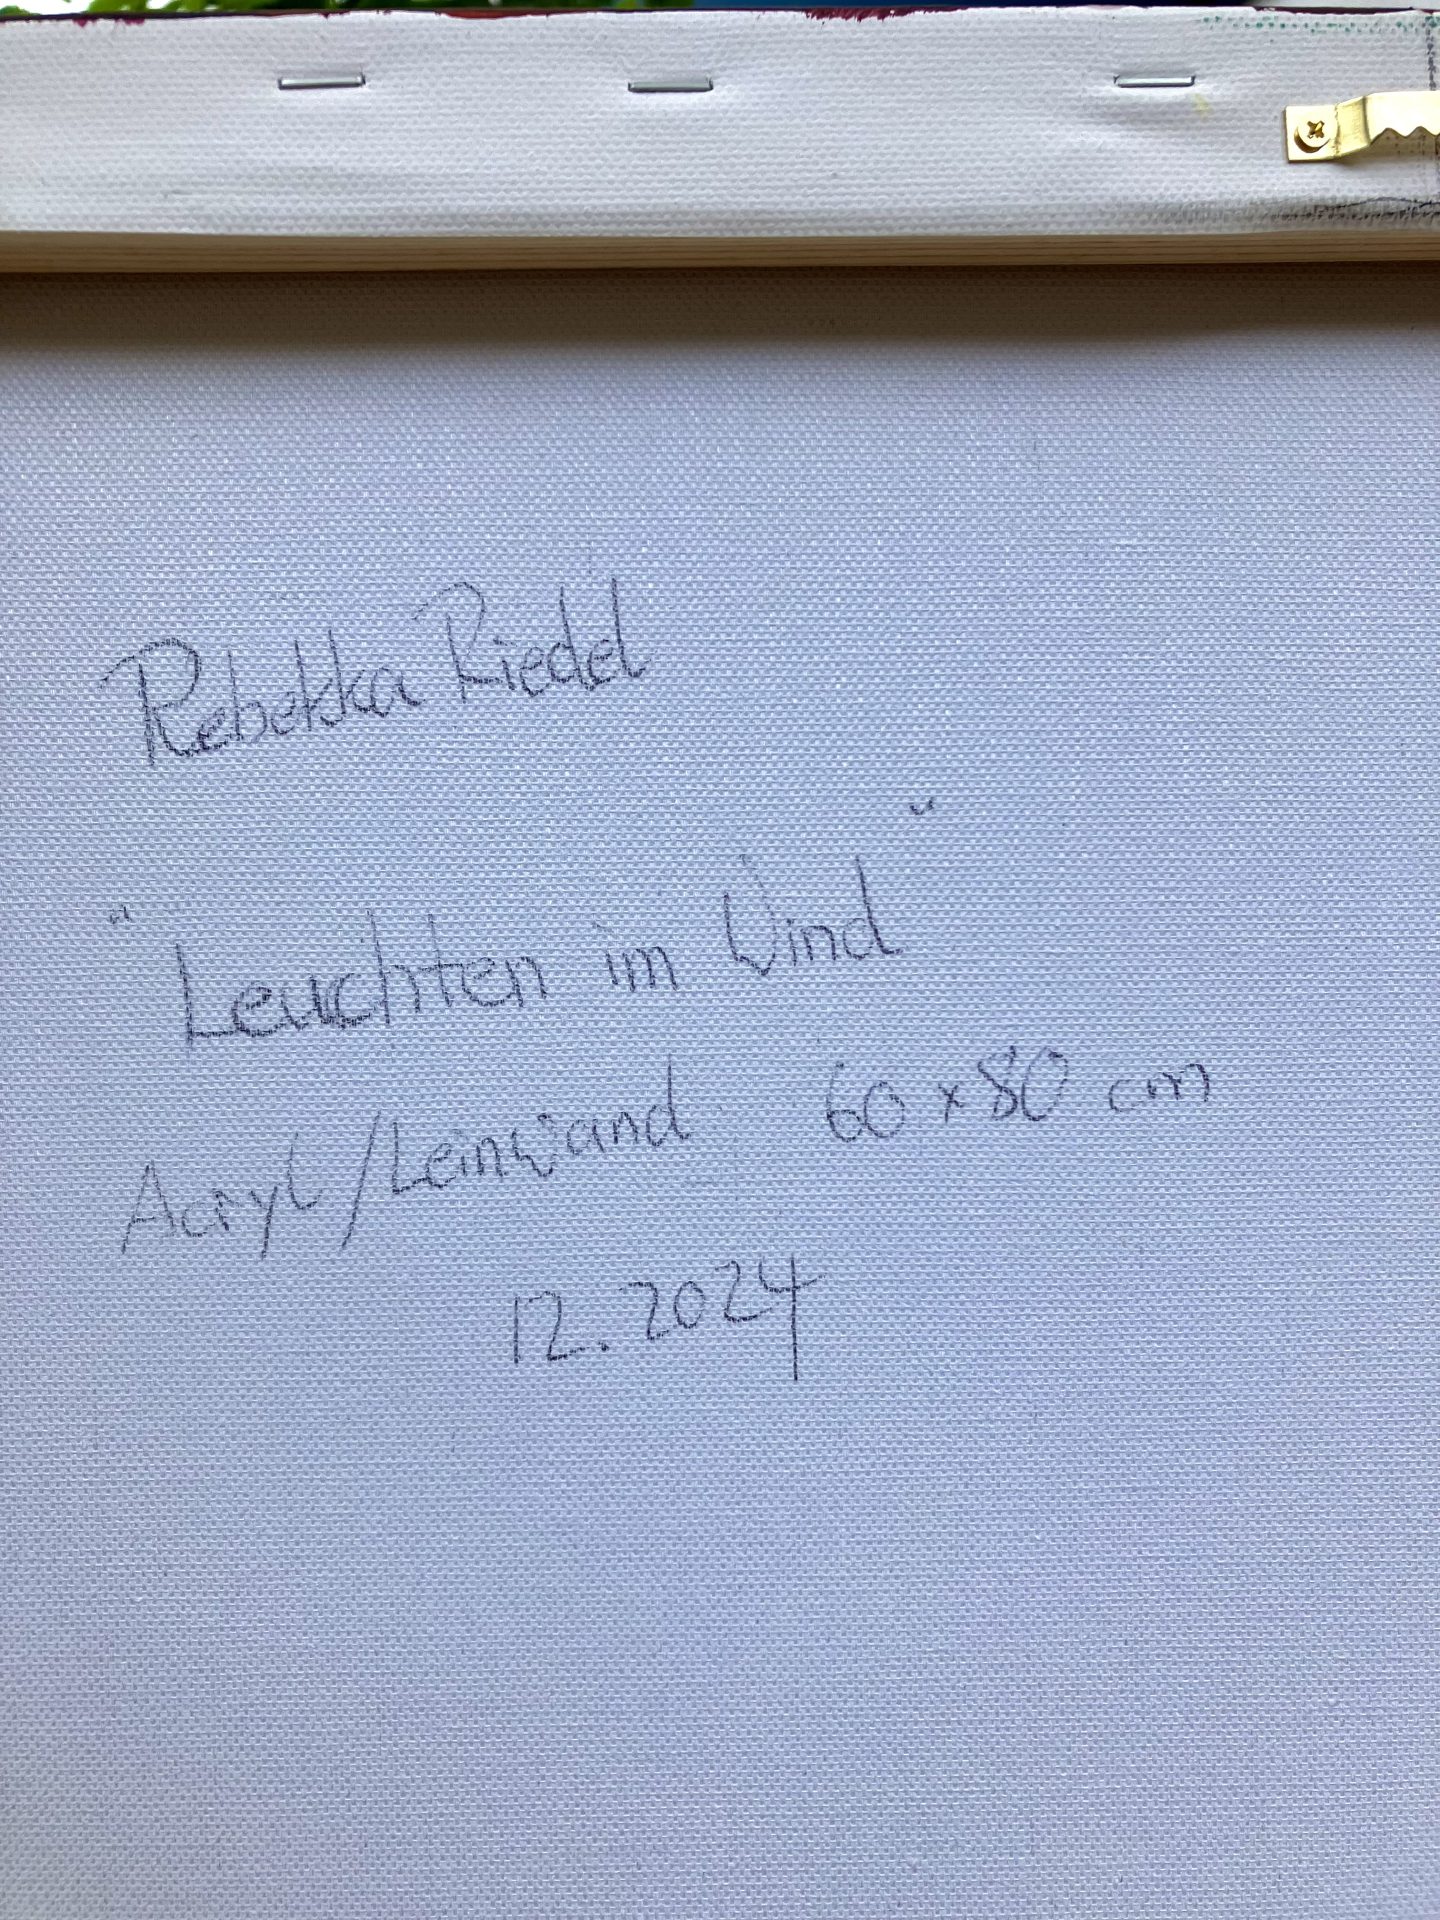 Rebekka Riedel
"Leuchten im Wind"
Acryl/Leinwand 60 x 80 cm
12.2024